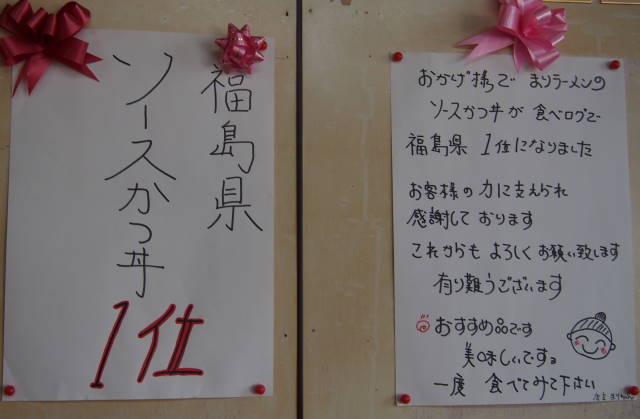 福島県
ソースかつ丼
1位
おかげ様で まりラーメンの
ソースかつ丼が 食べログで
福島県 1位になりました
お客様の力に支えられ
感謝して おります
これからも よろしく お願い致します
有り難うございます
おすすめ品です
美味しいです。
一度 食べてみて下さい